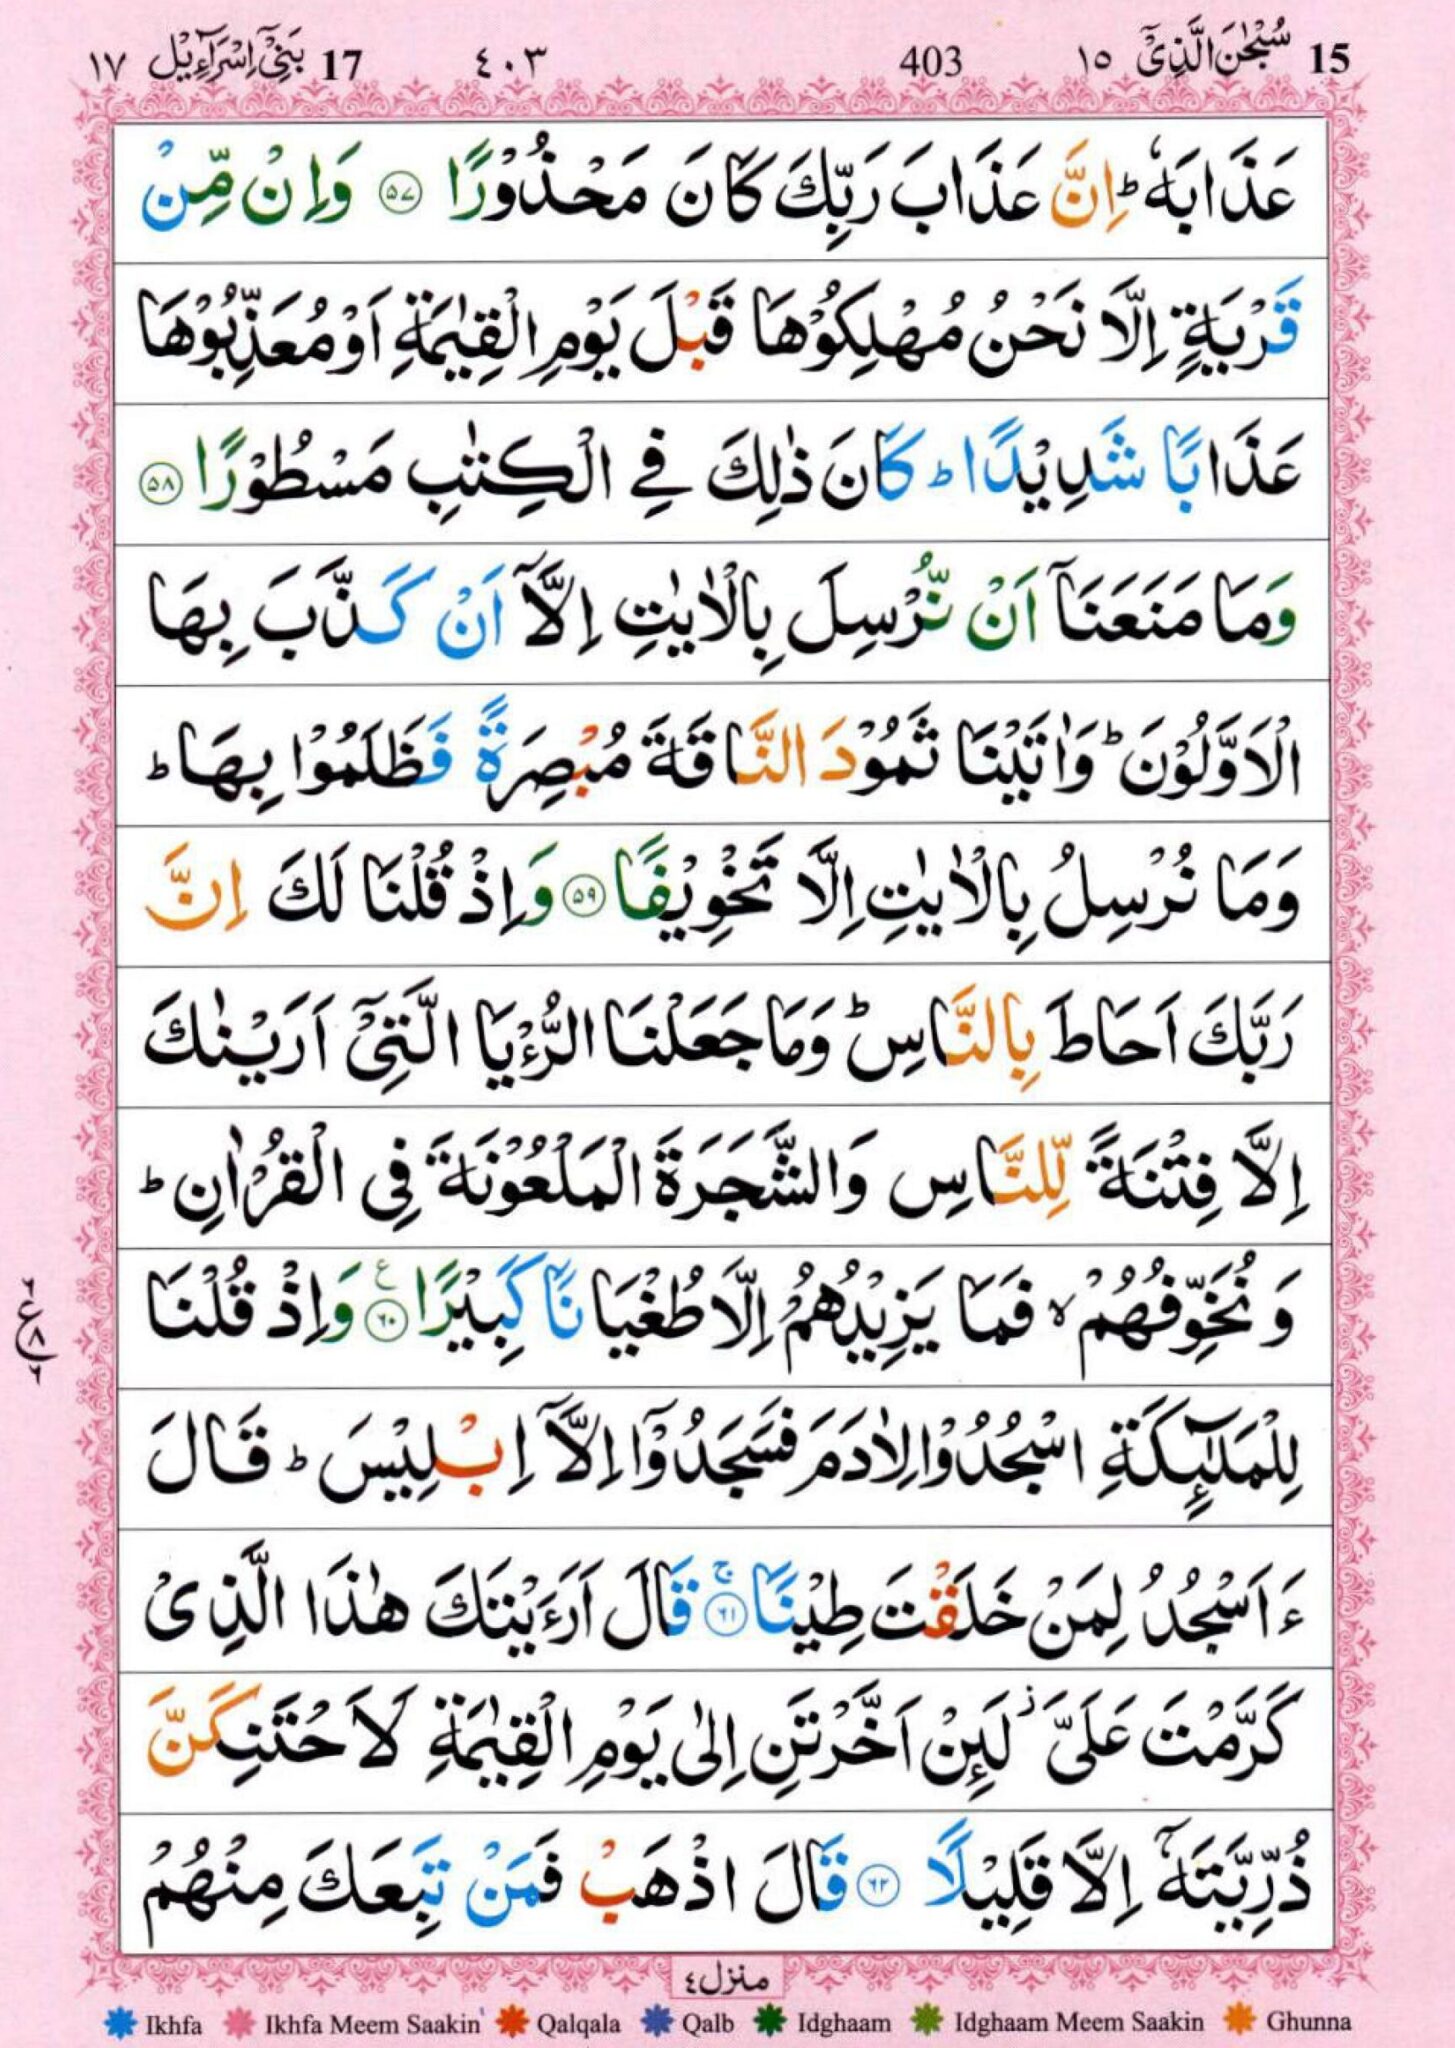 15 سُبْحٰنَ الَّذِیْۤ ١٥ 403 ٤٠٣ 17 بَنِیْۤ اِسْرَآءِیْل ١٧
عَذَابَهٗ ؕ اِنَّ عَذَابَ رَبِّكَ كَانَ مَحْذُوْرًا ۵۷ وَاِنْ مِّنْ
قَرْیَةٍ اِلَّا نَحْنُ مُهْلِكُوْهَا قَبْلَ یَوْمِ الْقِیٰمَةِ اَوْ مُعَذِّبُوْهَا
عَذَابًا شَدِیْدًا ؕ كَانَ ذٰلِكَ فِی الْكِتٰبِ مَسْطُوْرًا ۵۸
وَمَا مَنَعَنَاۤ اَنْ نُّرْسِلَ بِالْاٰیٰتِ اِلَّاۤ اَنْ كَذَّبَ بِهَا
الْاَوَّلُوْنَ ؕ وَاٰتَیْنَا ثَمُوْدَ النَّاقَةَ مُبْصِرَةً فَظَلَمُوْا بِهَا ؕ
وَمَا نُرْسِلُ بِالْاٰیٰتِ اِلَّا تَخْوِیْفًا ۵۹ وَاِذْ قُلْنَا لَكَ اِنَّ
رَبَّكَ اَحَاطَ بِالنَّاسِ ؕ وَمَا جَعَلْنَا الرُّءْیَا الَّتِیْۤ اَرَیْنٰكَ
اِلَّا فِتْنَةً لِّلنَّاسِ وَالشَّجَرَةَ الْمَلْعُوْنَةَ فِی الْقُرْاٰنِ ؕ
وَنُخَوِّفُهُمْ ۙ فَمَا یَزِیْدُهُمْ اِلَّا طُغْیَانًا كَبِیْرًا ۶۰ ع وَاِذْ قُلْنَا
ع ۶ ۸ ۶
لِلْمَلٰٓىِٕكَةِ اسْجُدُوْا لِاٰدَمَ فَسَجَدُوْۤا اِلَّاۤ اِبْلِیْسَ ؕ قَالَ
ءَاَسْجُدُ لِمَنْ خَلَقْتَ طِیْنًا ۶۱ ۚ قَالَ اَرَءَیْتَكَ هٰذَا الَّذِیْ
كَرَّمْتَ عَلَیَّ ز لَىِٕنْ اَخَّرْتَنِ اِلٰی یَوْمِ الْقِیٰمَةِ لَاَحْتَنِكَنَّ
ذُرِّیَّتَهٗۤ اِلَّا قَلِیْلًا ۶۲ قَالَ اذْهَبْ فَمَنْ تَبِعَكَ مِنْهُمْ
منزل ٤
Ikhfa Ikhfa Meem Saakin Qalqala Qalb Idghaam Idghaam Meem Saakin Ghunna